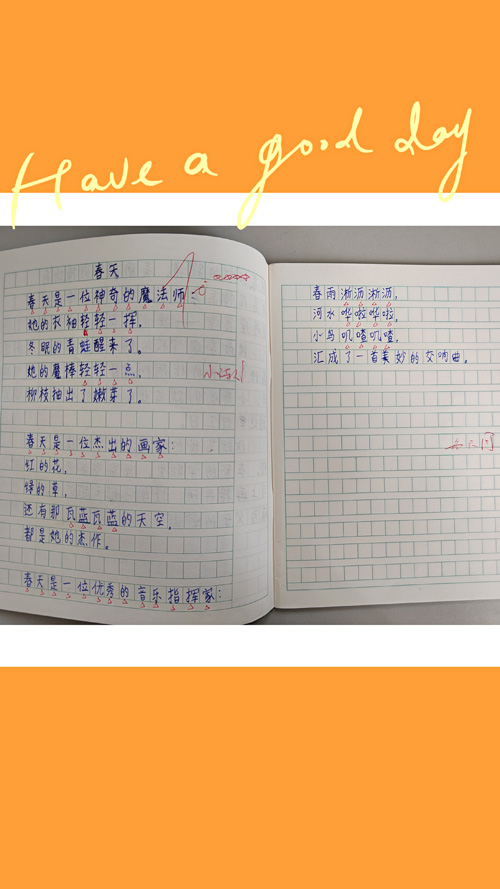 Have a good day
春天
春天是一位神奇的魔法师:
她的衣袖轻轻一挥,
冬眠的青蛙醒来了。
她的魔棒轻轻一点,
柳枝抽出了嫩芽了。
春天是一位杰出的画家:
红的花,
绿的草,
还有那瓦蓝瓦蓝的天空,
都是她的杰作。
春天是一位优秀的音乐指挥家:
春雨淅沥淅沥,
河水哗啦哗啦,
小鸟叽喳叽喳,
汇成了一首美妙的交响曲。